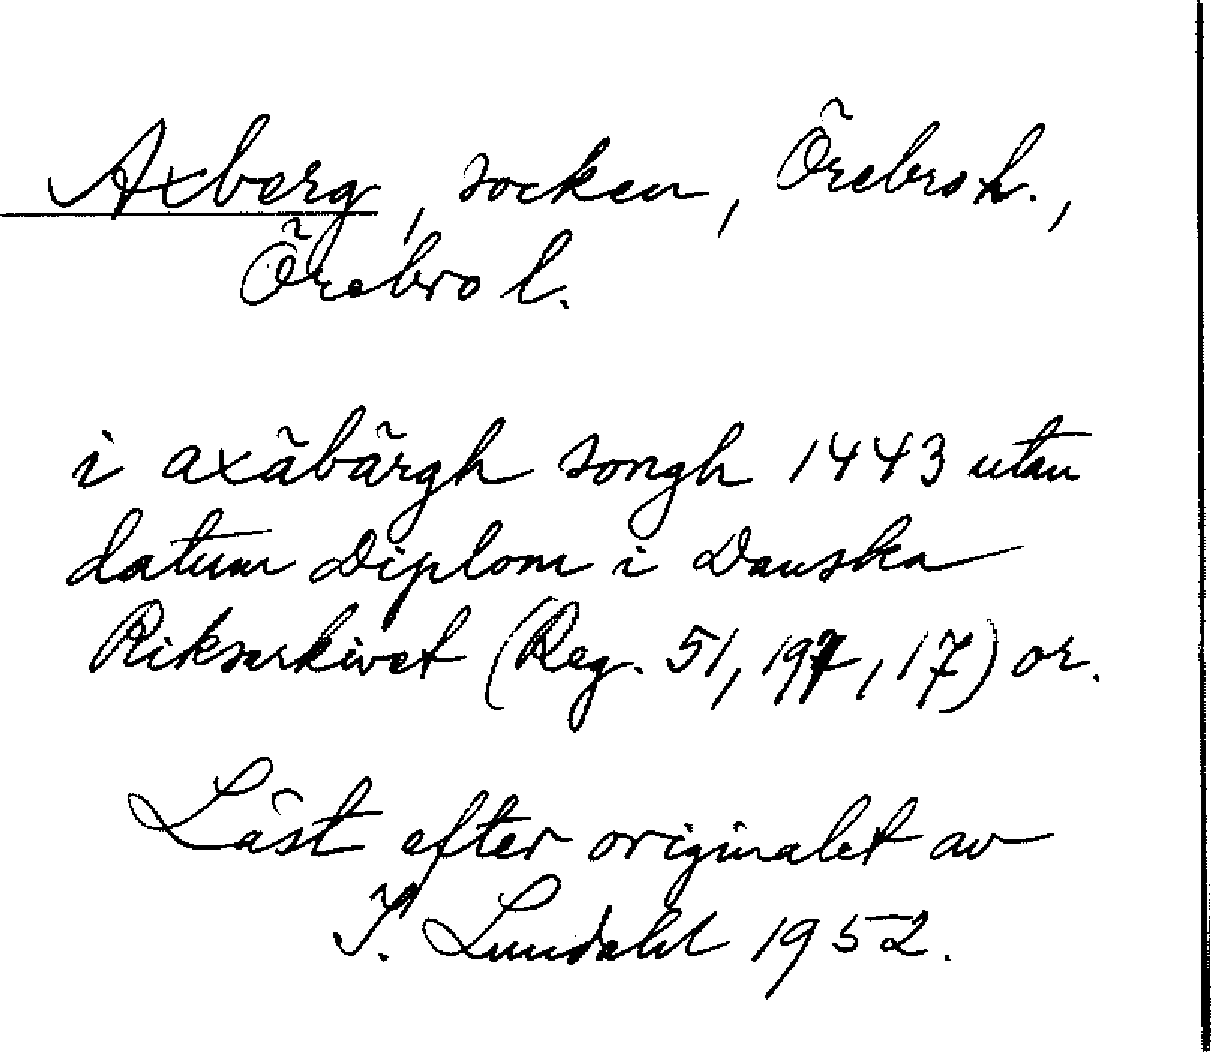 Axberg, socken, Örebro h.,
Örebro l.
i axäbärgh songh 1443 utan
datum Diplom i Danska
Riksarkivet (Reg. 51, 197, 17) or.
Läst efter originalet av
I. Lundahl 1952.